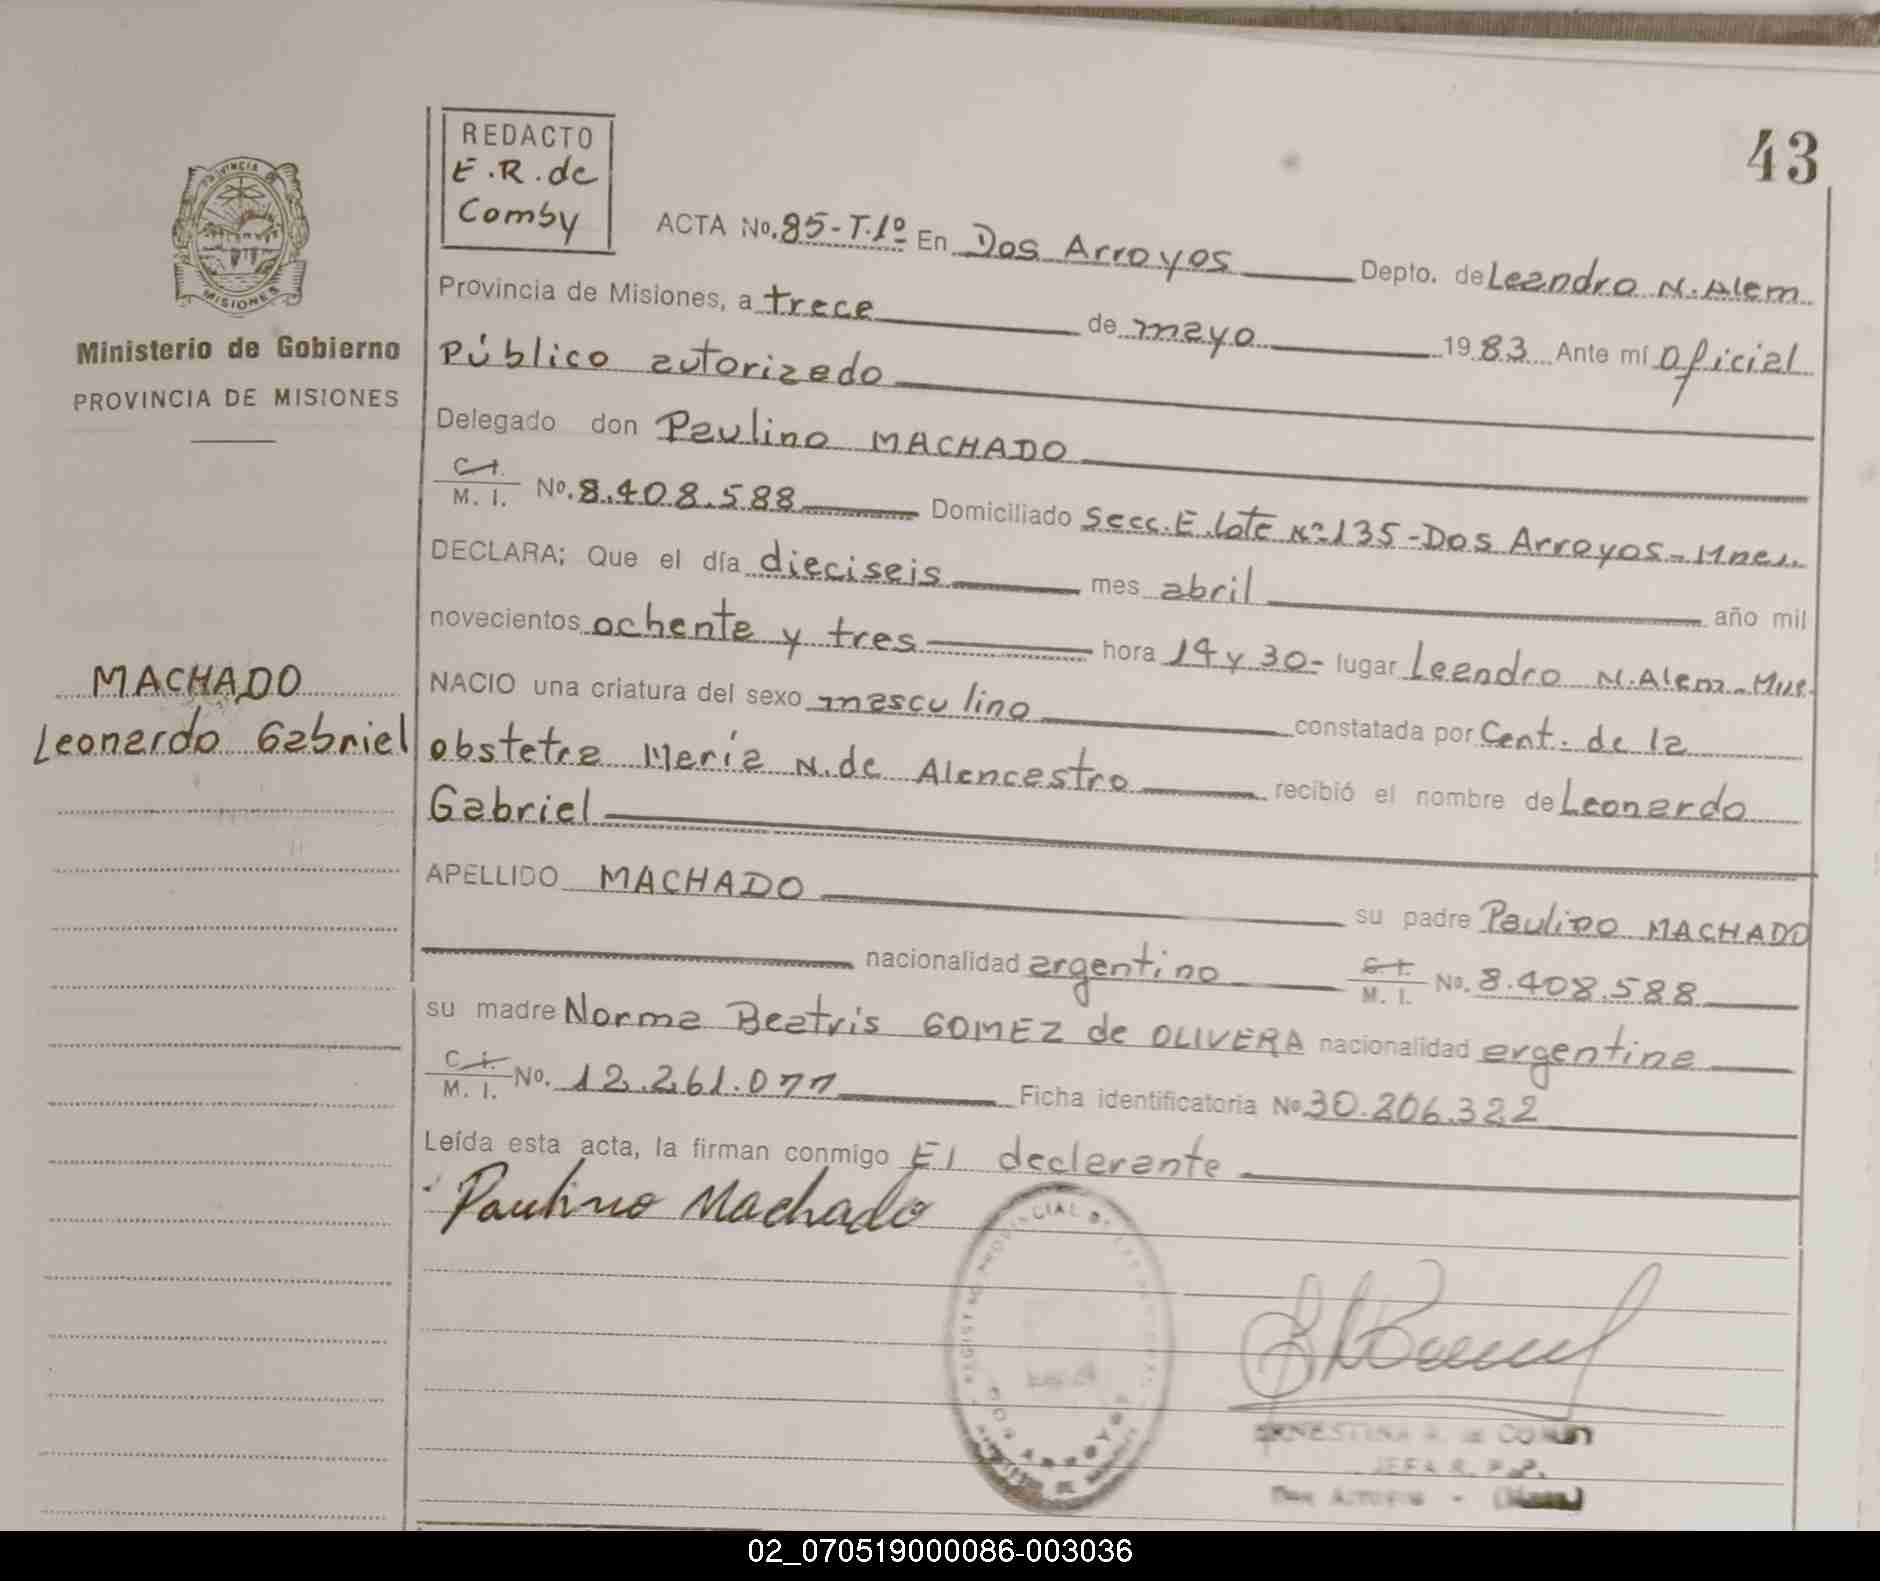 43
REDACTO
E.R. de
Comby
PROVINCIA DE
MISIONES
Ministerio de Gobierno
PROVINCIA DE MISIONES
MACHADO
Leonardo Gabriel
ACTA No. 85-T.1º En Dos Arroyos Depto. de Leandro N. Alem
Provincia de Misiones, a trece de mayo 1983 Ante mí Oficial
Público autorizado
Delegado don Paulino MACHADO
C.I. M. I. No. 8.408.588 Domiciliado Secc. E. lote Nº 135-Dos Arroyos-Mnes.
DECLARA; Que el día dieciseis mes abril año mil
novecientos ochenta y tres hora 14 y 30- lugar Leandro N. Alem-Mnes.
NACIO una criatura del sexo masculino constatada por Cert. de la
obstetra María N. de Alencastro recibió el nombre de Leonardo
Gabriel
APELLIDO MACHADO su padre Paulino MACHADO
nacionalidad argentino C.I. M. I. No. 8.408.588
su madre Norma Beatris GOMEZ de OLIVERA nacionalidad argentina
C.I. M. I. No. 12.261.077 Ficha identificatoria No 30.206.322
Leída esta acta, la firman conmigo El declarante
Paulino Machado
REGISTRO PROVINCIAL DE LAS PERSONAS
DOS ARROYOS
ERNESTINA R. de COMBY
JEFA R. P. P.
Dos Arroyos - (Mnes.)
02_070519000086-003036